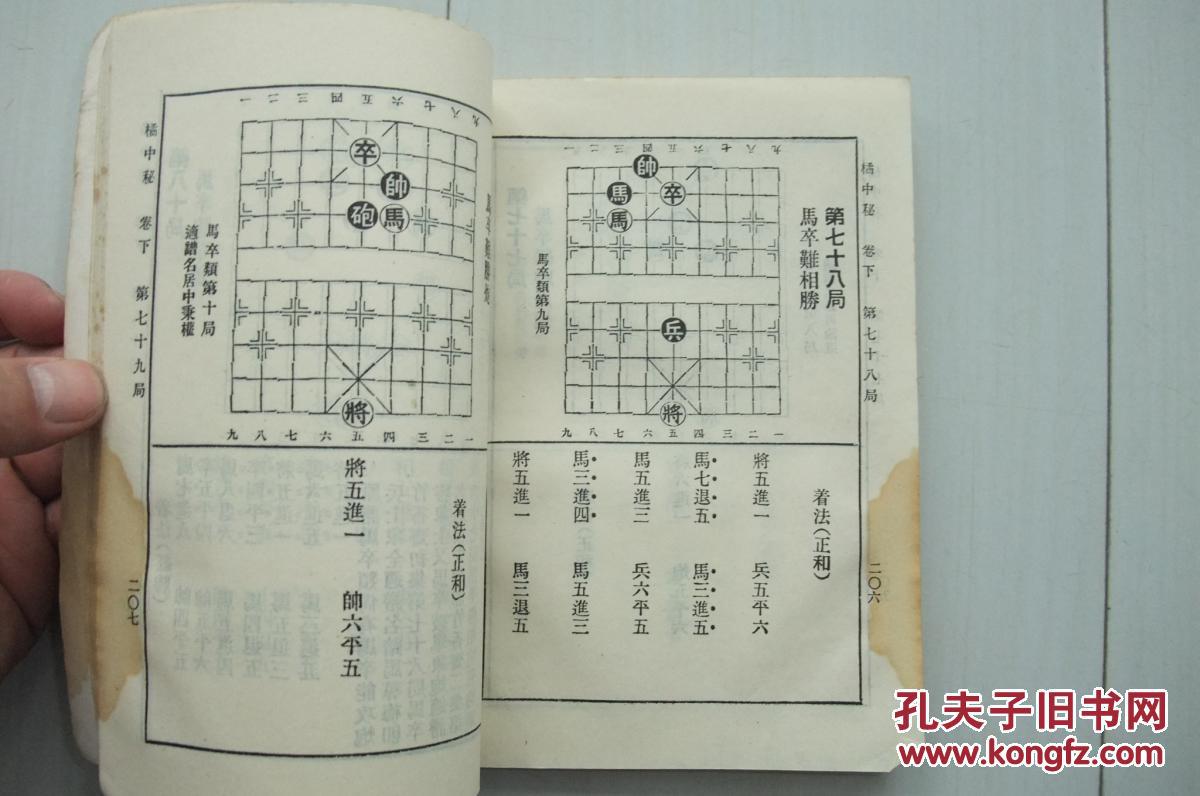 橘中秘 卷下 第七十八局
二〇六
第七十八局
馬卒難相勝
九八七六五四三二一
帥
馬
卒
馬
兵
將
九八七六五四三二一
馬卒類第九局
着法(正和)
將五進一 兵五平六
馬七退五 馬三進五
馬五進三 兵六平五
馬三進四 馬五進三
將五進一 馬三退五
一二三四五六七八九
卒
帥
砲
馬
將
九八七六五四三二一
馬卒類第十局
適譜名居中秉權
着法(正和)
將五進一 帥六平五
橘中秘 卷下 第七十九局
二〇七
孔夫子旧书网
www.kongfz.com